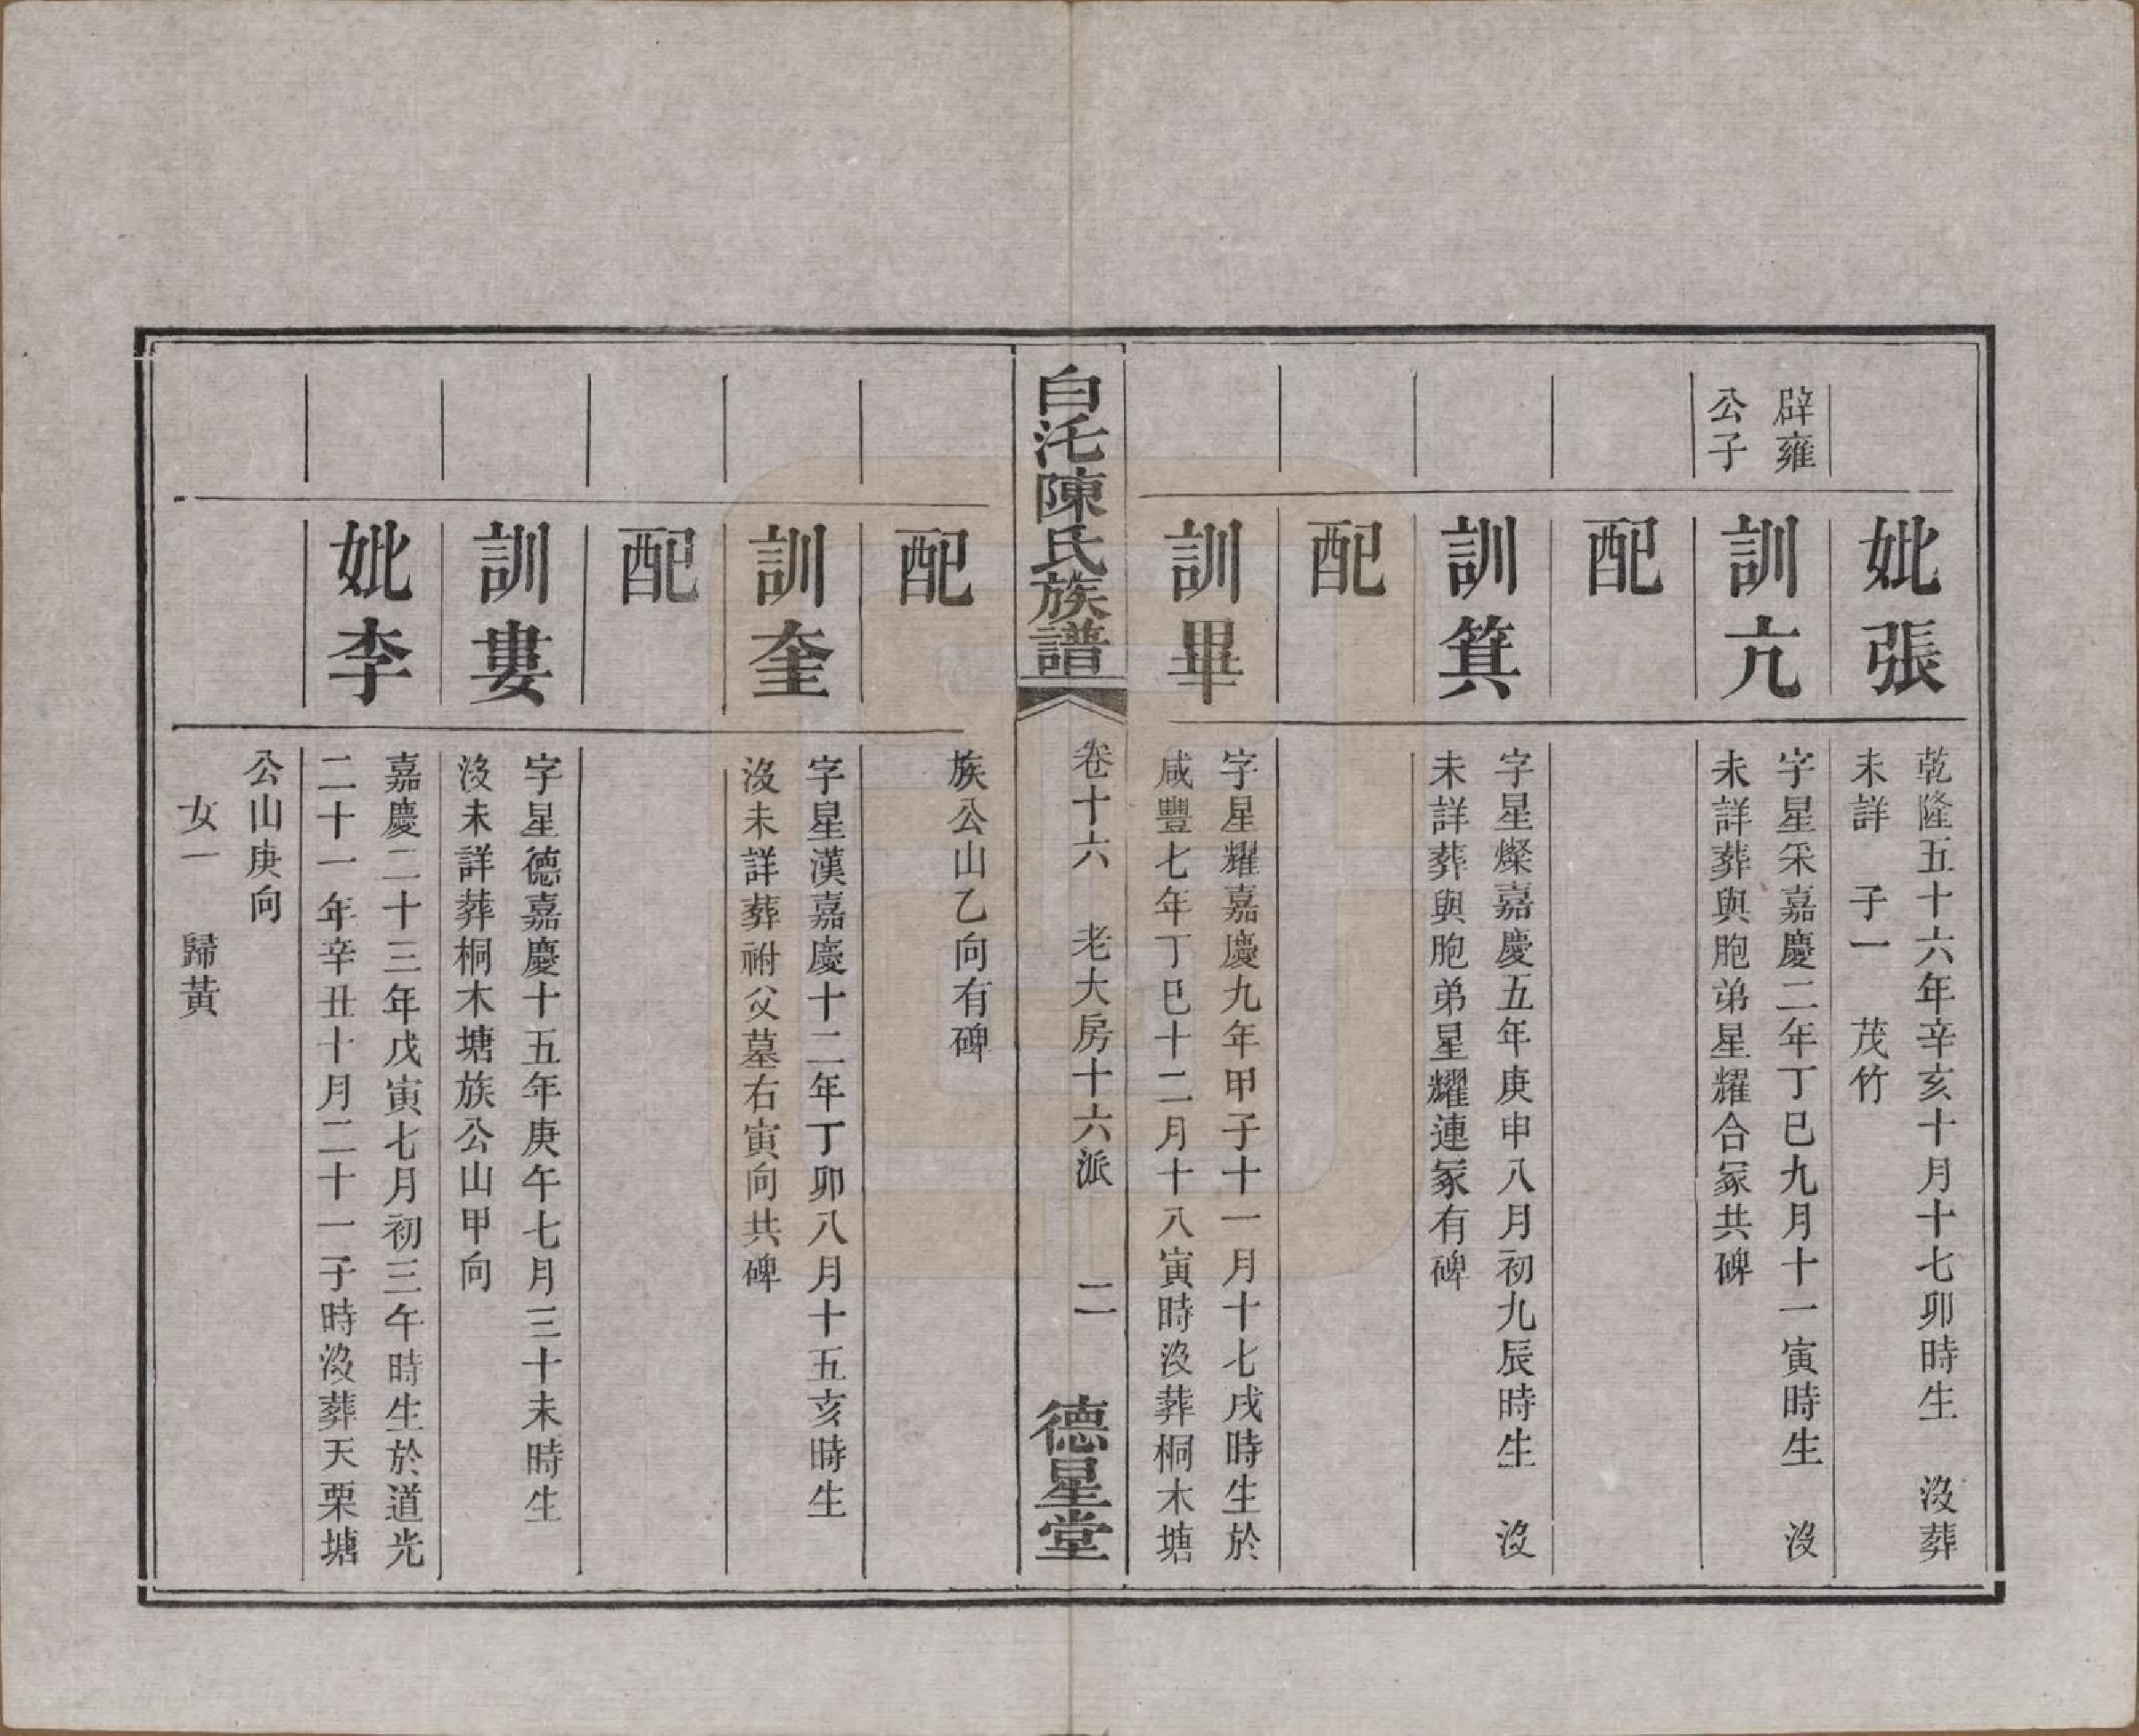 妣張
乾隆五十六年辛亥十月十七卯時生　沒葬
未詳　子一　茂竹
辟雍
公子
訓亢
字星采嘉慶二年丁巳九月十一寅時生　沒
未詳葬與胞弟星耀合冢共碑
配
訓箕
字星燦嘉慶五年庚申八月初九辰時生　沒
未詳葬與胞弟星耀連冢有碑
配
訓畢
字星耀嘉慶九年甲子十一月十七戌時生於
咸豐七年丁巳十二月十八寅時沒葬桐木塘
白沱陳氏族譜
卷十六　老大房十六派　二
德星堂
族公山乙向有碑
配
訓奎
字星漢嘉慶十二年丁卯八月十五亥時生
沒未詳葬祔父墓右寅向共碑
配
訓婁
字星德嘉慶十五年庚午七月三十未時生
沒未詳葬桐木塘族公山甲向
妣李
嘉慶二十三年戊寅七月初三午時生於道光
二十一年辛丑十月二十一子時沒葬天栗塘
公山庚向
女一　歸黃